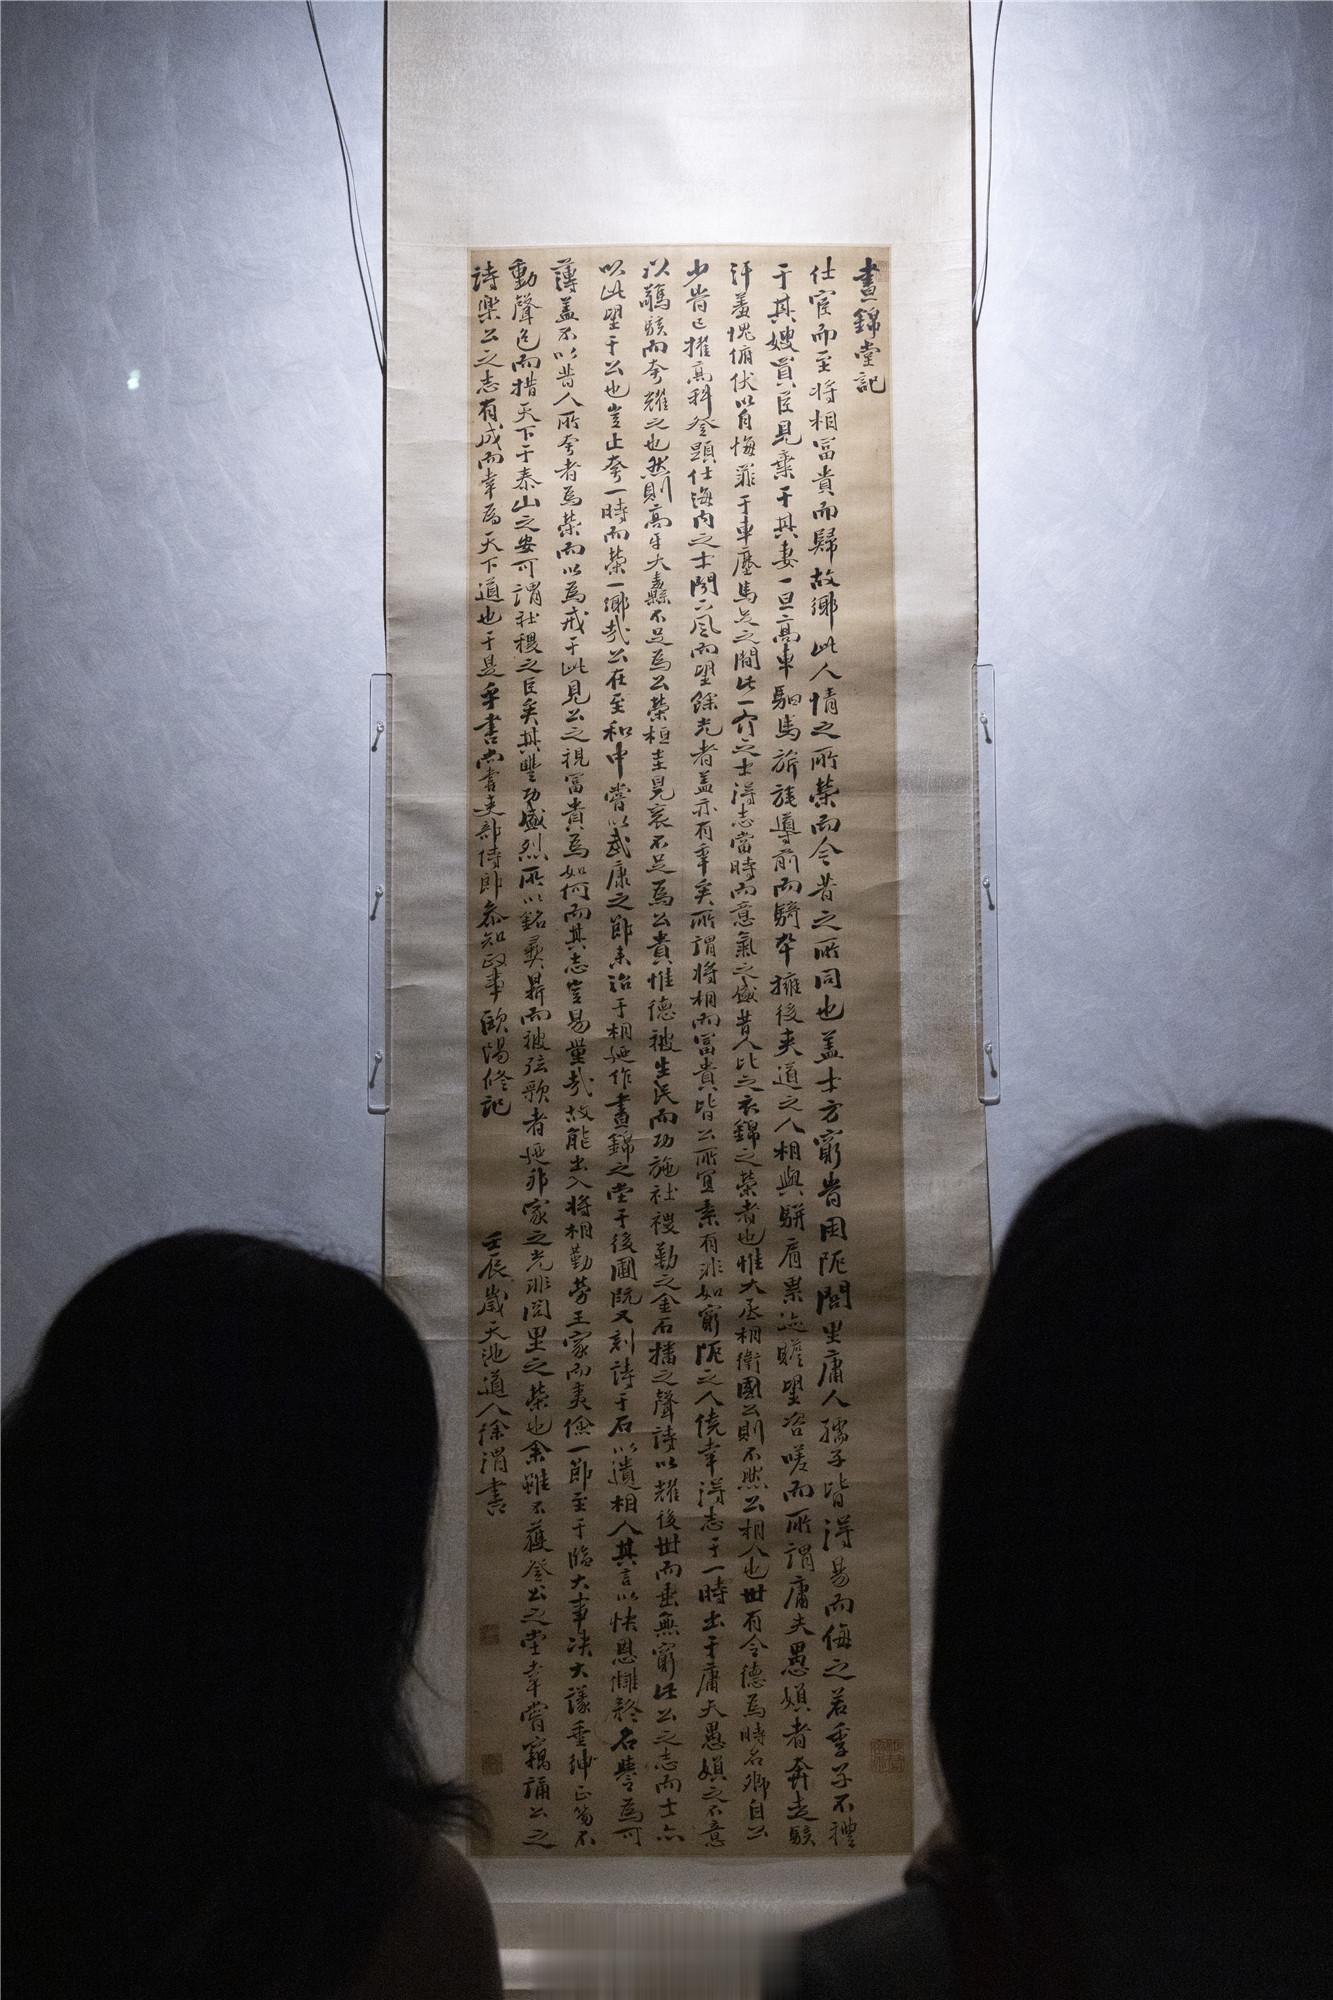 晝錦堂記
仕宦而至將相富貴而歸故鄉此人情之所榮而今昔之所同也蓋士方窮旹困阨閭里庸人孺子皆得易而侮之若季子不禮
于其嫂買臣見棄于其妻一旦高車駟馬旂旄導前而騎卒擁後夾道之人相與駢肩累迹瞻望咨嗟而所謂庸夫愚婦者奔走駭
汗羞愧俯伏以自悔罪于車塵馬足之間此一介之士得志當時而意氣之盛昔人比之衣錦之榮者也惟大丞相衛國公則不然公相人也世有令德為時名卿自公
少旹已擢高科登顯仕海內之士聞下風而望餘光者蓋亦有年矣所謂將相而富貴皆公所宜素有非如窮阨之人僥幸得志于一時出于庸夫愚婦之不意
以驚駭而夸耀之也然則高牙大纛不足為公榮桓圭冕袞不足為公貴惟德被生民而功施社稷勒之金石播之聲詩以耀後世而垂無窮此公之志而士亦
以此望于公也豈止夸一時而榮一鄉哉公在至和中嘗以武康之節來治于相迺作晝錦之堂于後圃既又刻詩于石以遺相人其言以快恩讎矜名譽為可
薄蓋不以昔人所夸者為榮而以為戒于此見公之視富貴為如何而其志豈易量哉故能出入將相勤勞王家而夷險一節至于臨大事決大議垂紳正笏不
動聲色而措天下于泰山之安可謂社稷之臣矣其豐功盛烈所以銘彝鼎而被弦歌者迺邦家之光非閭里之榮也余雖不獲登公之堂幸嘗竊誦公之
詩樂公之志有成而幸為天下道也于是乎書尚書吏部侍郎參知政事歐陽修記 壬辰歲天池道人徐渭書